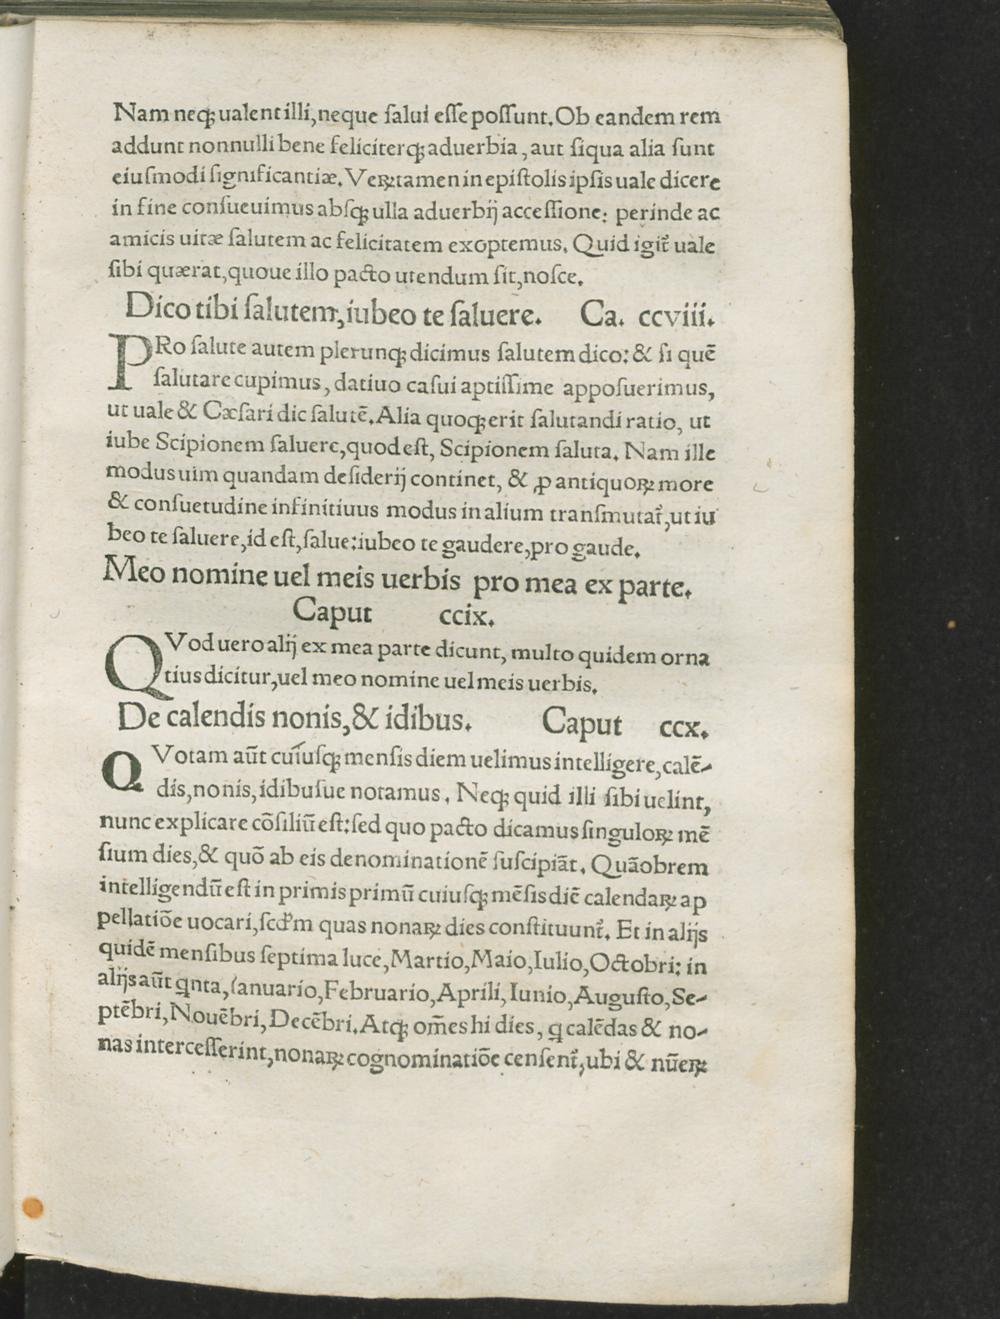 Nam neqꝫ ualent illi, neque ſalui eſſe poſſunt. Ob eandem rem
addunt nonnulli bene feliciterqꝫ aduerbia, aut ſiqua alia ſunt
eiuſmodi ſignificantiæ. Veꝝtamen in epiſtolis ipſis uale dicere
in fine conſueuimus abſqꝫ ulla aduerbij acceſſione: perinde ac
amicis uitæ ſalutem ac felicitatem exoptemus. Quid igit᷑ uale
ſibi quærat, quoue illo pacto utendum ſit, noſce.
Dico tibi ſalutem, iubeo te ſaluere. Ca. ccviii.
PRo ſalute autem plerunqꝫ dicimus ſalutem dico: & ſi quē
ſalutare cupimus, datiuo caſui aptiſſime appoſuerimus,
ut uale & Cæſari dic ſalutē. Alia quoqꝫ erit ſalutandi ratio, ut
iube Scipionem ſaluere, quod eſt, Scipionem ſaluta. Nam ille
modus uim quandam deſiderij continet, & ꝓ antiquoꝝ more
& conſuetudine infinitiuus modus in alium tranſmutat᷑, ut iu
beo te ſaluere, id eſt, ſalue: iubeo te gaudere, pro gaude.
Meo nomine uel meis uerbis pro mea ex parte.
Caput ccix.
QVod uero alij ex mea parte dicunt, multo quidem orna
tius dicitur, uel meo nomine uel meis uerbis.
De calendis nonis, & idibus. Caput ccx.
QVotam aūt cuiuſqꝫ menſis diem uelimus intelligere, calē-
dis, nonis, idibuſue notamus. Neqꝫ quid illi ſibi uelint,
nunc explicare cōſiliū eſt: ſed quo pacto dicamus ſinguloꝝ mē
ſium dies, & quō ab eis denominationē ſuſcipiāt. Quāobrem
intelligendū eſt in primis primū cuiuſqꝫ mēſis diē calendaꝝ ap
pellatiōe uocari, ſcd'm quas nonaꝝ dies conſtituunt᷑. Et in alijs
quidē menſibus ſeptima luce, Martio, Maio, Iulio, Octobri: in
alijs aūt qnta, Ianuario, Februario, Aprili, Iunio, Auguſto, Se-
ptēbri, Nouēbri, Decēbri. Atqꝫ om̄es hi dies, q calēdas & no-
nas interceſſerint, nonaꝝ cognominatiōe cenſent᷑, ubi & nūeꝝ